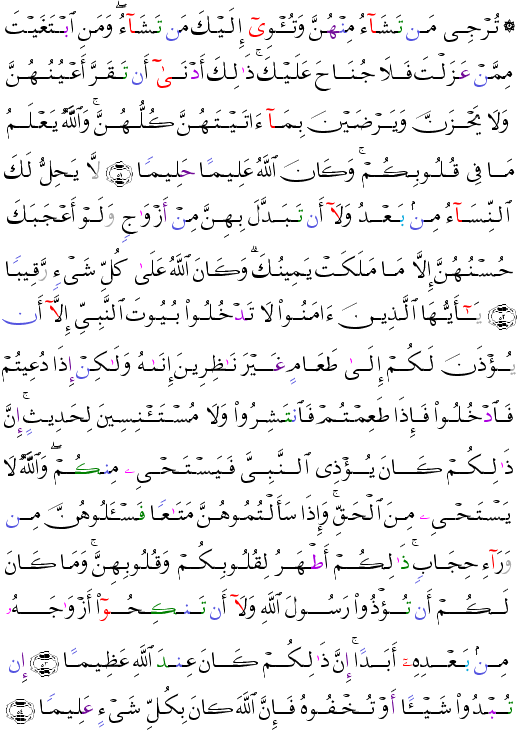 ۞ تُرْجِى مَن تَشَآءُ مِنْهُنَّ وَتُـْٔوِىٓ إِلَيْكَ مَن تَشَآءُ ۖ وَمَنِ ٱبْتَغَيْتَ
مِمَّنْ عَزَلْتَ فَلَا جُنَاحَ عَلَيْكَ ۚ ذَٰلِكَ أَدْنَىٰٓ أَن تَقَرَّ أَعْيُنُهُنَّ
وَلَا يَحْزَنَّ وَيَرْضَيْنَ بِمَآ ءَاتَيْتَهُنَّ كُلُّهُنَّ ۚ وَٱللَّهُ يَعْلَمُ
مَا فِى قُلُوبِكُمْ ۚ وَكَانَ ٱللَّهُ عَلِيمًا حَلِيمًا ۝٥١ لَّا يَحِلُّ لَكَ
ٱلنِّسَآءُ مِنۢ بَعْدُ وَلَآ أَن تَبَدَّلَ بِهِنَّ مِنْ أَزْوَٰجٍ وَلَوْ أَعْجَبَكَ
حُسْنُهُنَّ إِلَّا مَا مَلَكَتْ يَمِينُكَ ۗ وَكَانَ ٱللَّهُ عَلَىٰ كُلِّ شَىْءٍ رَّقِيبًا
۝٥٢ يَـٰٓأَيُّهَا ٱلَّذِينَ ءَامَنُوا۟ لَا تَدْخُلُوا۟ بُيُوتَ ٱلنَّبِىِّ إِلَّآ أَن
يُؤْذَنَ لَكُمْ إِلَىٰ طَعَامٍ غَيْرَ نَـٰظِرِينَ إِنَىٰهُ وَلَـٰكِنْ إِذَا دُعِيتُمْ
فَٱدْخُلُوا۟ فَإِذَا طَعِمْتُمْ فَٱنتَشِرُوا۟ وَلَا مُسْتَـْٔنِسِينَ لِحَدِيثٍ ۚ إِنَّ
ذَٰلِكُمْ كَانَ يُؤْذِى ٱلنَّبِىَّ فَيَسْتَحْىِۦ مِنكُمْ ۖ وَٱللَّهُ لَا
يَسْتَحْىِۦ مِنَ ٱلْحَقِّ ۚ وَإِذَا سَأَلْتُمُوهُنَّ مَتَـٰعًا فَسْـَٔلُوهُنَّ مِن
وَرَآءِ حِجَابٍ ۚ ذَٰلِكُمْ أَطْهَرُ لِقُلُوبِكُمْ وَقُلُوبِهِنَّ ۚ وَمَا كَانَ
لَكُمْ أَن تُؤْذُوا۟ رَسُولَ ٱللَّهِ وَلَآ أَن تَنكِحُوٓا۟ أَزْوَٰجَهُۥ
مِنۢ بَعْدِهِۦٓ أَبَدًا ۚ إِنَّ ذَٰلِكُمْ كَانَ عِندَ ٱللَّهِ عَظِيمًا ۝٥٣ إِن
تُبْدُوا۟ شَيْـًٔا أَوْ تُخْفُوهُ فَإِنَّ ٱللَّهَ كَانَ بِكُلِّ شَىْءٍ عَلِيمًا ۝٥٤